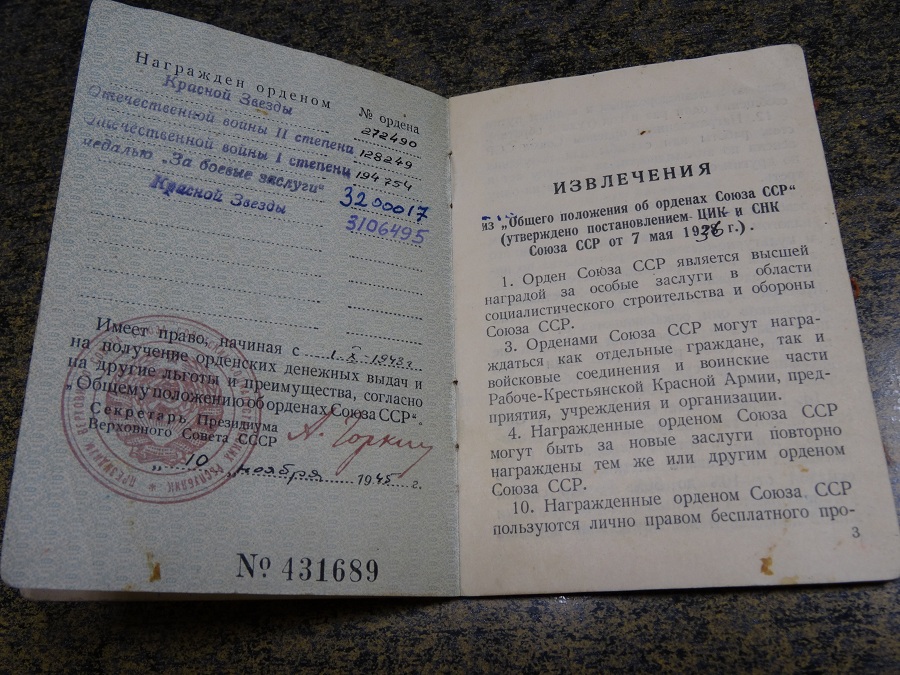 Награжден орденом
№ ордена
Красной Звезды 272490
Отечественной войны II степени 128249
Отечественной войны I степени 194754
медалью „За боевые заслуги“ 3200017
Красной Звезды 3106495
Имеет право, начиная с 1-X-1943 г.
на получение орденских денежных выдач и
на другие льготы и преимущества, согласно
„Общему положению об орденах Союза ССР“.
Секретарь Президиума
Верховного Совета СССР А. Горкин
„10“ ноября 1945 г.
№ 431689
ИЗВЛЕЧЕНИЯ
из „Общего положения об орденах Союза ССР“
(утверждено постановлением ЦИК и СНК
Союза ССР от 7 мая 1936 г.).
1. Орден Союза ССР является высшей
наградой за особые заслуги в области
социалистического строительства и обороны
Союза ССР.
3. Орденами Союза ССР могут награ-
ждаться как отдельные граждане, так и
войсковые соединения и воинские части
Рабоче-Крестьянской Красной Армии, пред-
приятия, учреждения и организации.
4. Награжденные орденом Союза ССР
могут быть за новые заслуги повторно
награждены тем же или другим орденом
Союза ССР.
10. Награжденные орденом Союза ССР
пользуются лично правом бесплатного про-
3